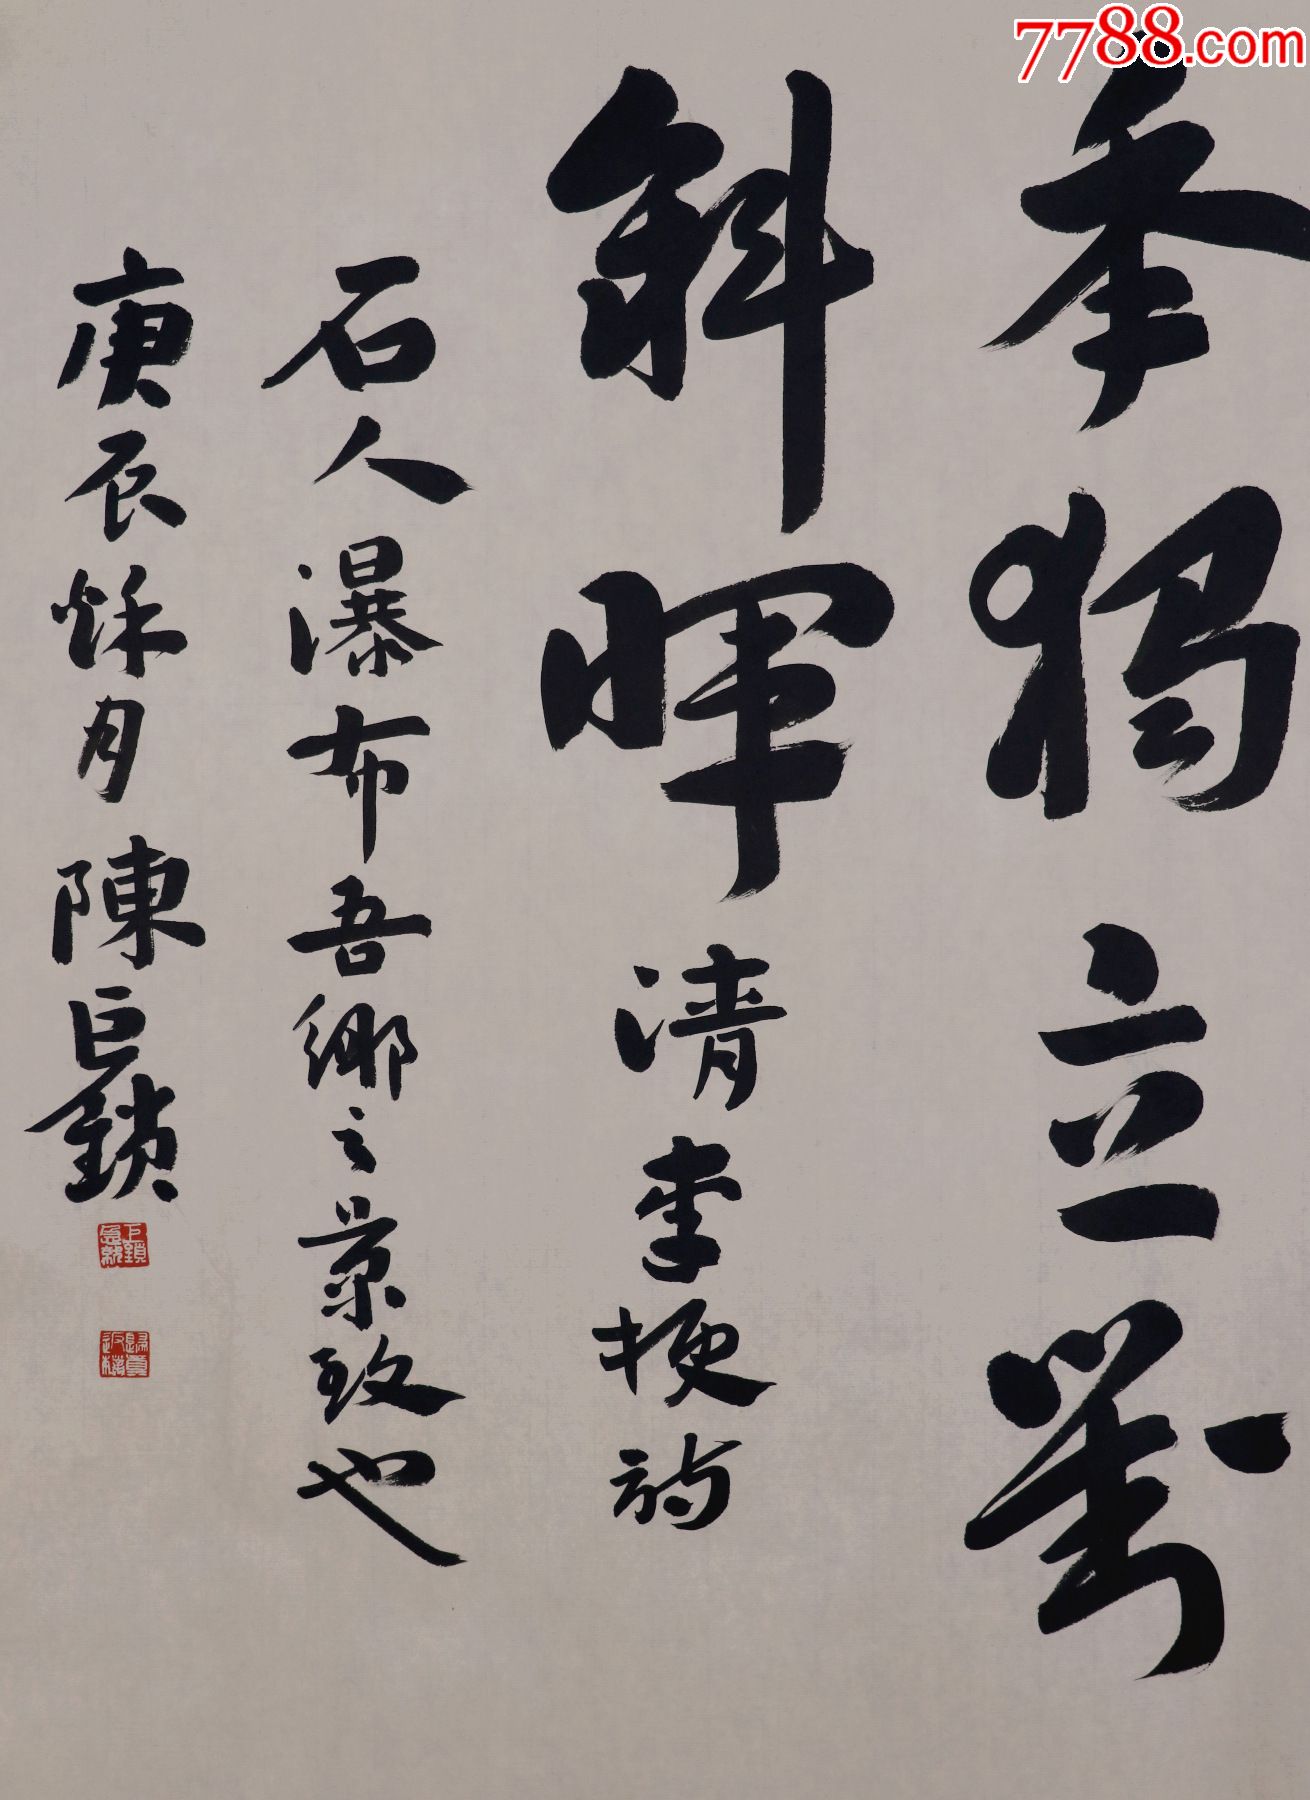 7788.com
秊獨立對
斜暉清李梗詩
石人瀑布吾鄉之景致也
庚辰秌月陳巨鎖